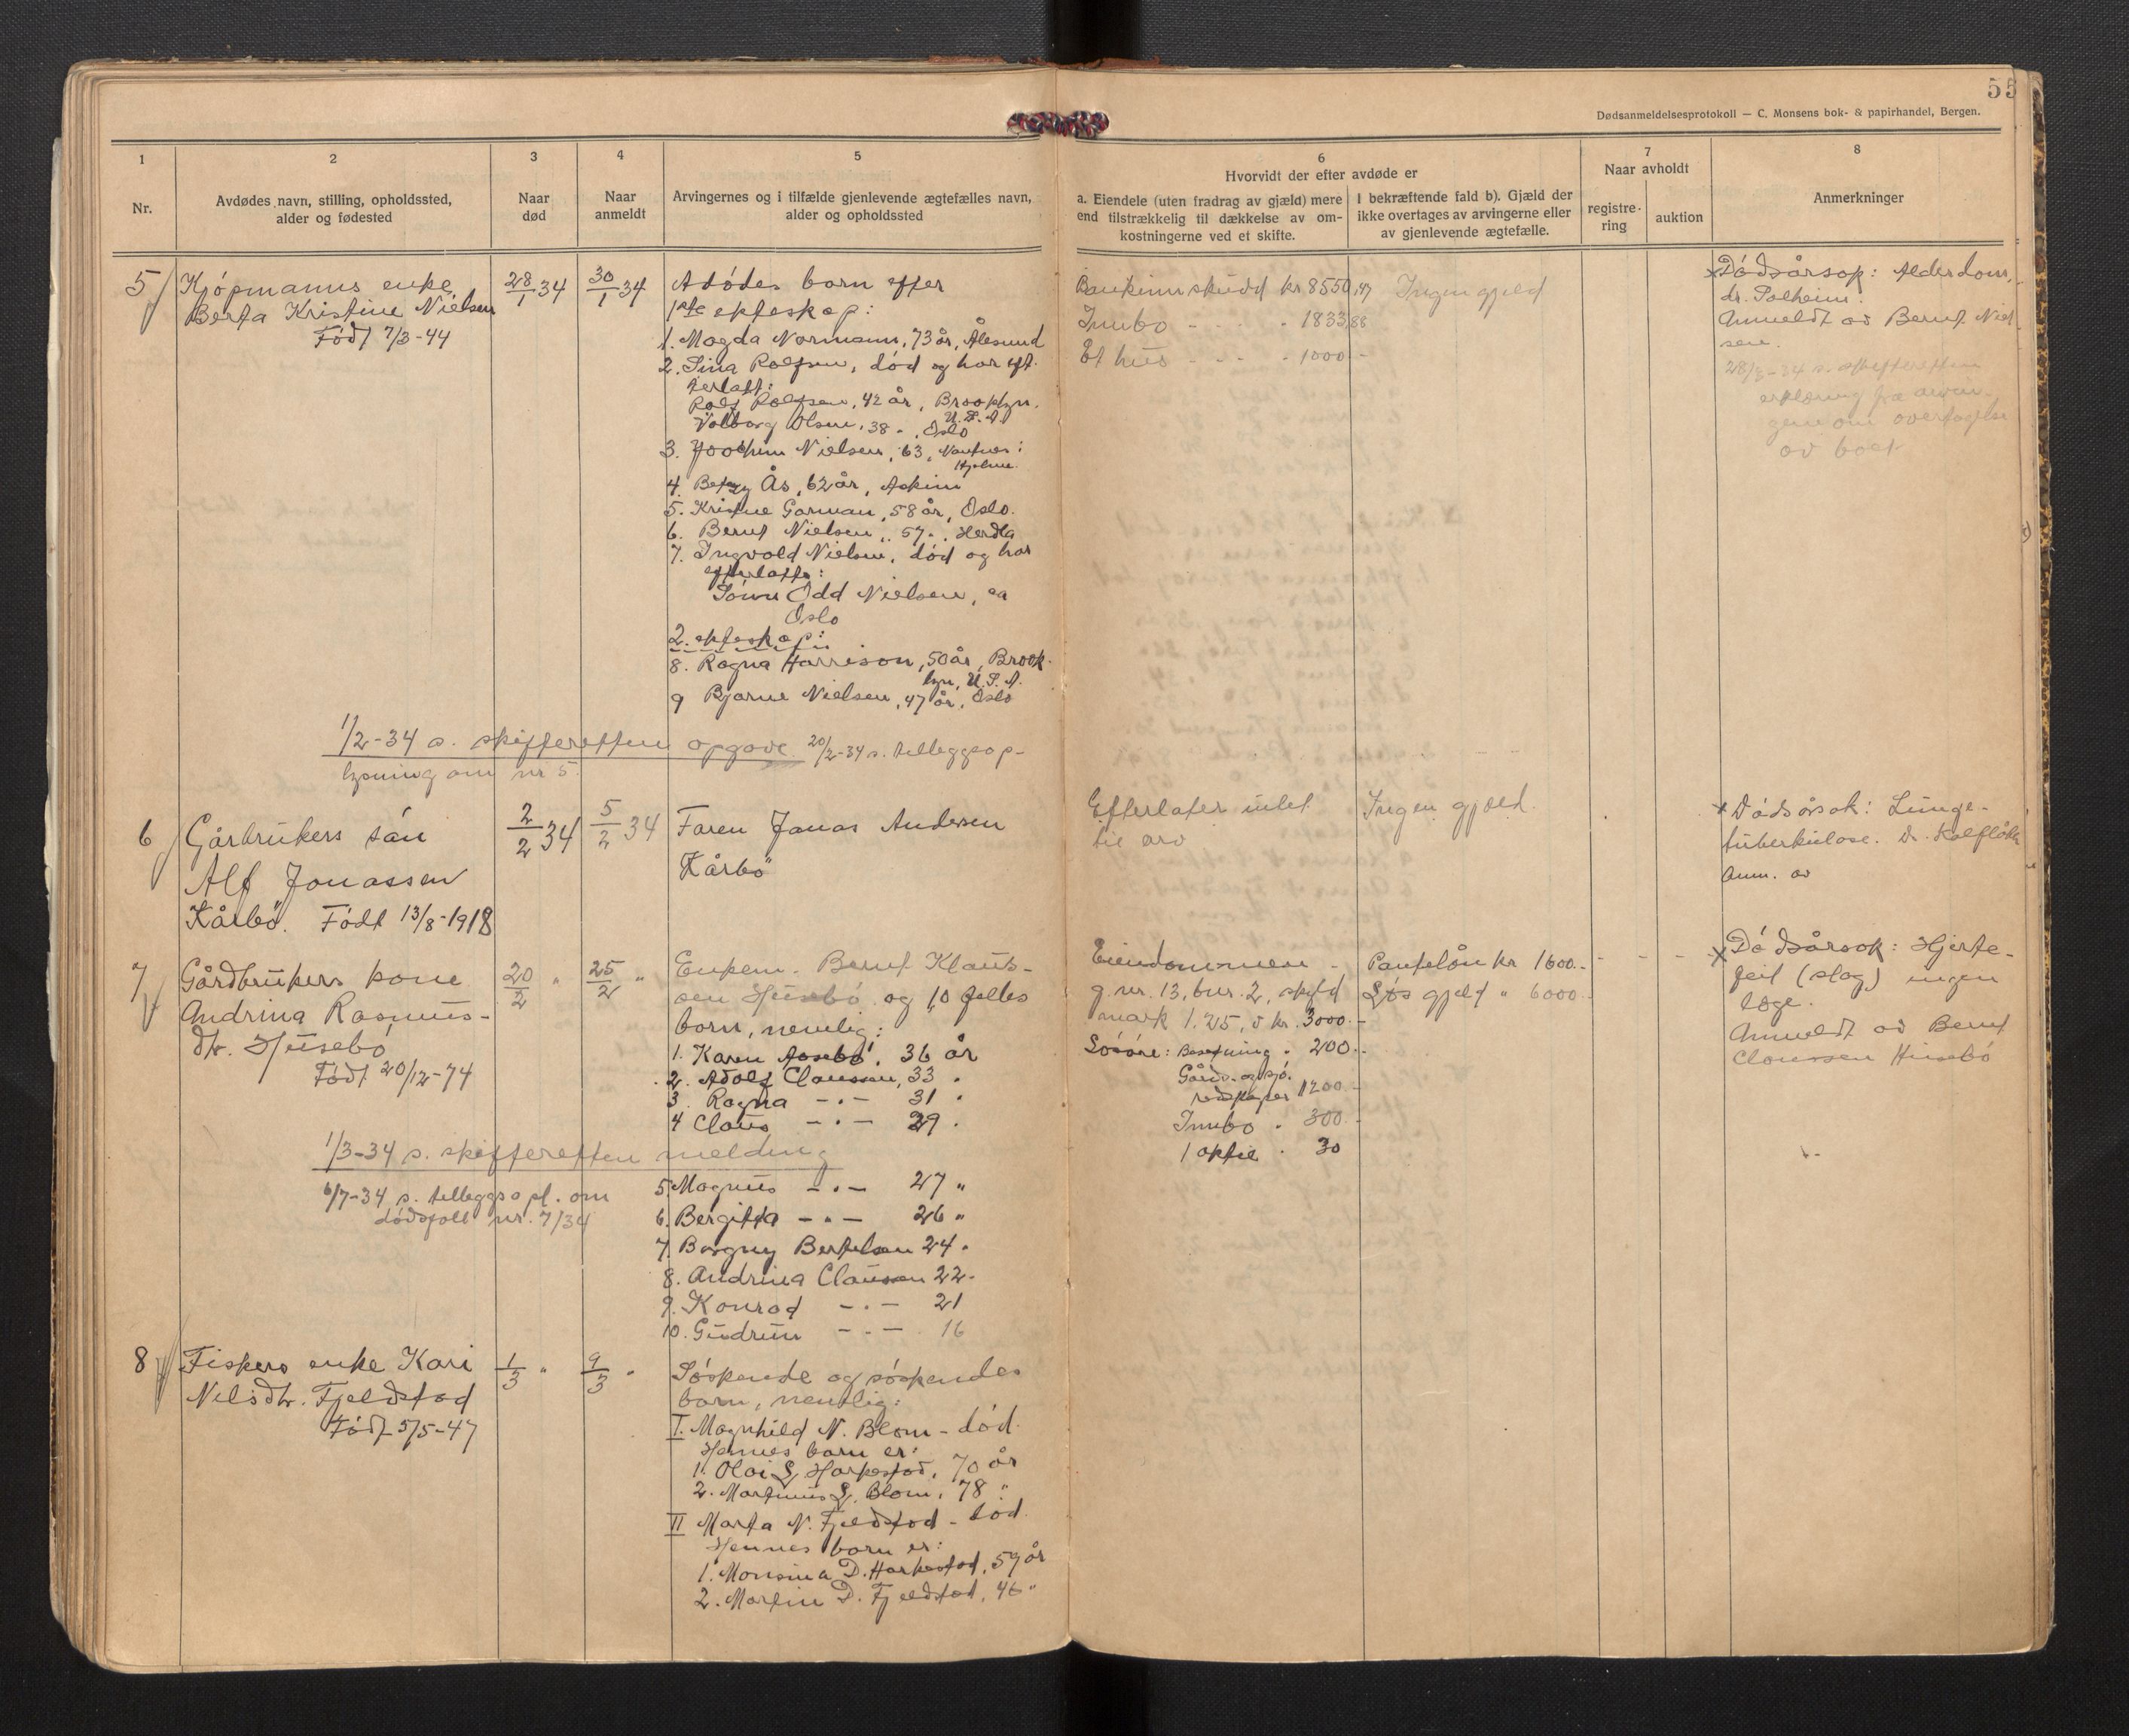 55
Dødsanmeldelsesprotokoll — C. Monsens bok- & papirhandel, Bergen.
1
2
3
4
5
6
7
8
Nr.
Avdødes navn, stilling, opholdssted,
alder og fødested
Naar
død
Naar
anmeldt
Arvingernes og i tilfælde gjenlevende ægtefælles navn,
alder og opholdssted
Hvorvidt der efter avdøde er
a. Eiendele (uten fradrag av gjæld) mere
end tilstrækkelig til dækkelse av om-
kostningerne ved et skifte.
I bekræftende fald b). Gjæld der
ikke overtages av arvingerne eller
av gjenlevende ægtefælle.
Naar avholdt
registre-
ring
auktion
Anmerkninger
5
Kjópmanns enke
Berta Kristine Nielsen
Født 7/3-44
28/1 34
30/1 34
Avdódes born efter
1ste ekteskap:
1. Magda Normann, 73 år, Ålesund
2. Sina Rolfsen, död og har eft-
terlatt:
Rolf Rolfsen, 42 år, Brooklyn,
U.S.A.
Valborg Olsen, 38 " , Oslo
3. Joachim Nielsen, 63,
Hjelme.
4. Betzy Ås, 62 år, Askim
5. Kristine Gorman, 58 år, Oslo.
6. Bernt Nielsen, 57 " , Herdla
7. Ingvald Nielsen, död og har
efterlatt:
Sönn Odd Nielsen, ca
Oslo
2. ekteskap:
8. Ragna Harrison, 50 år, Brook-
lyn, U.S.A.
9 Bjarne Nielsen, 47 år, Oslo
Bankinnskudd kr 8550,47
Innbo - - - - 1833,88
Et hus - - - - 1000 -
Ingen gjeld
x Dódsårsak: Alderdom,
dr. Solheim.
Anmeldt av Bernt Niel-
sen.
28/3-34 s. skifteretten
erklæring fra arvin-
gene om overtagelse
av boet
1/2-34 s. skifteretten opgave 20/2-34 s. tilleggsop-
lysning om nr 5.
6
Gårbrukers sán
Alf Jonassen
Kårbö. Födt 13/8-1918
2/2 34
5/2 34
Faren Jonas Andersen
Kårbö
Efterlater intet
til arv
Ingen gjeld.
x Dódsårsak: Lunge-
tuberkulose. Dr. Kalfløkk
Anm. av
7
Gårdbrukers kone
Andrina Rasmus-
dtr. Husebó
Födt 20/12-74
20/2 "
25/2 "
Enkem. Bernt Klaus-
sen Husebó og 10 felles
born, nemlig:
1. Karen Aasebó, 36 år
2. Adolf Claussen, 33 "
3. Ragna - " - 31 "
4 Claus - " - 29 "
Eiendommen -
g.nr. 13, bnr. 2, skyld
mark 1.25, v kr. 3000.-
Lösöre: Besetning " 200.-
Gårds- og sjó-
redskaper 1200.-
Innbo " 300.-
1 aktie " 30
Pantelån kr 1600.-
Lös gjeld " 6000.-
x Dódsårsak: Hjerte-
feil (slag) ingen
læge.
Anmeldt av Bernt
Claussen Husebó
1/3-34 s. skifteretten melding
6/7-34 s. tilleggsopl. om
dódsfall nr. 7/34
5. Magnus - " - 27 "
6. Bergitta - " - 26 "
7. Borgny Bertelsen 24 "
8. Andrina Claussen 22 "
9. Konrad - " - 21
10. Gudrun - " - 16
8
Fiskers enke Kari
Nilsdtr. Fjeldstad
Födt 5/5-47
1/3 "
9/3 "
Sóskende og sóskendes
barn, nemlig:
I. Magnhild N. Blom - död.
Hennes barn er:
1. Olai L. Harkestad, 70 år
2. Martinus L. Blom, 78 "
II Marta N. Fjeldstad - död.
Hennes born er:
1. Monsina D. Harkestad, 59 år
2. Martin D. Fjeldstad, 46 "